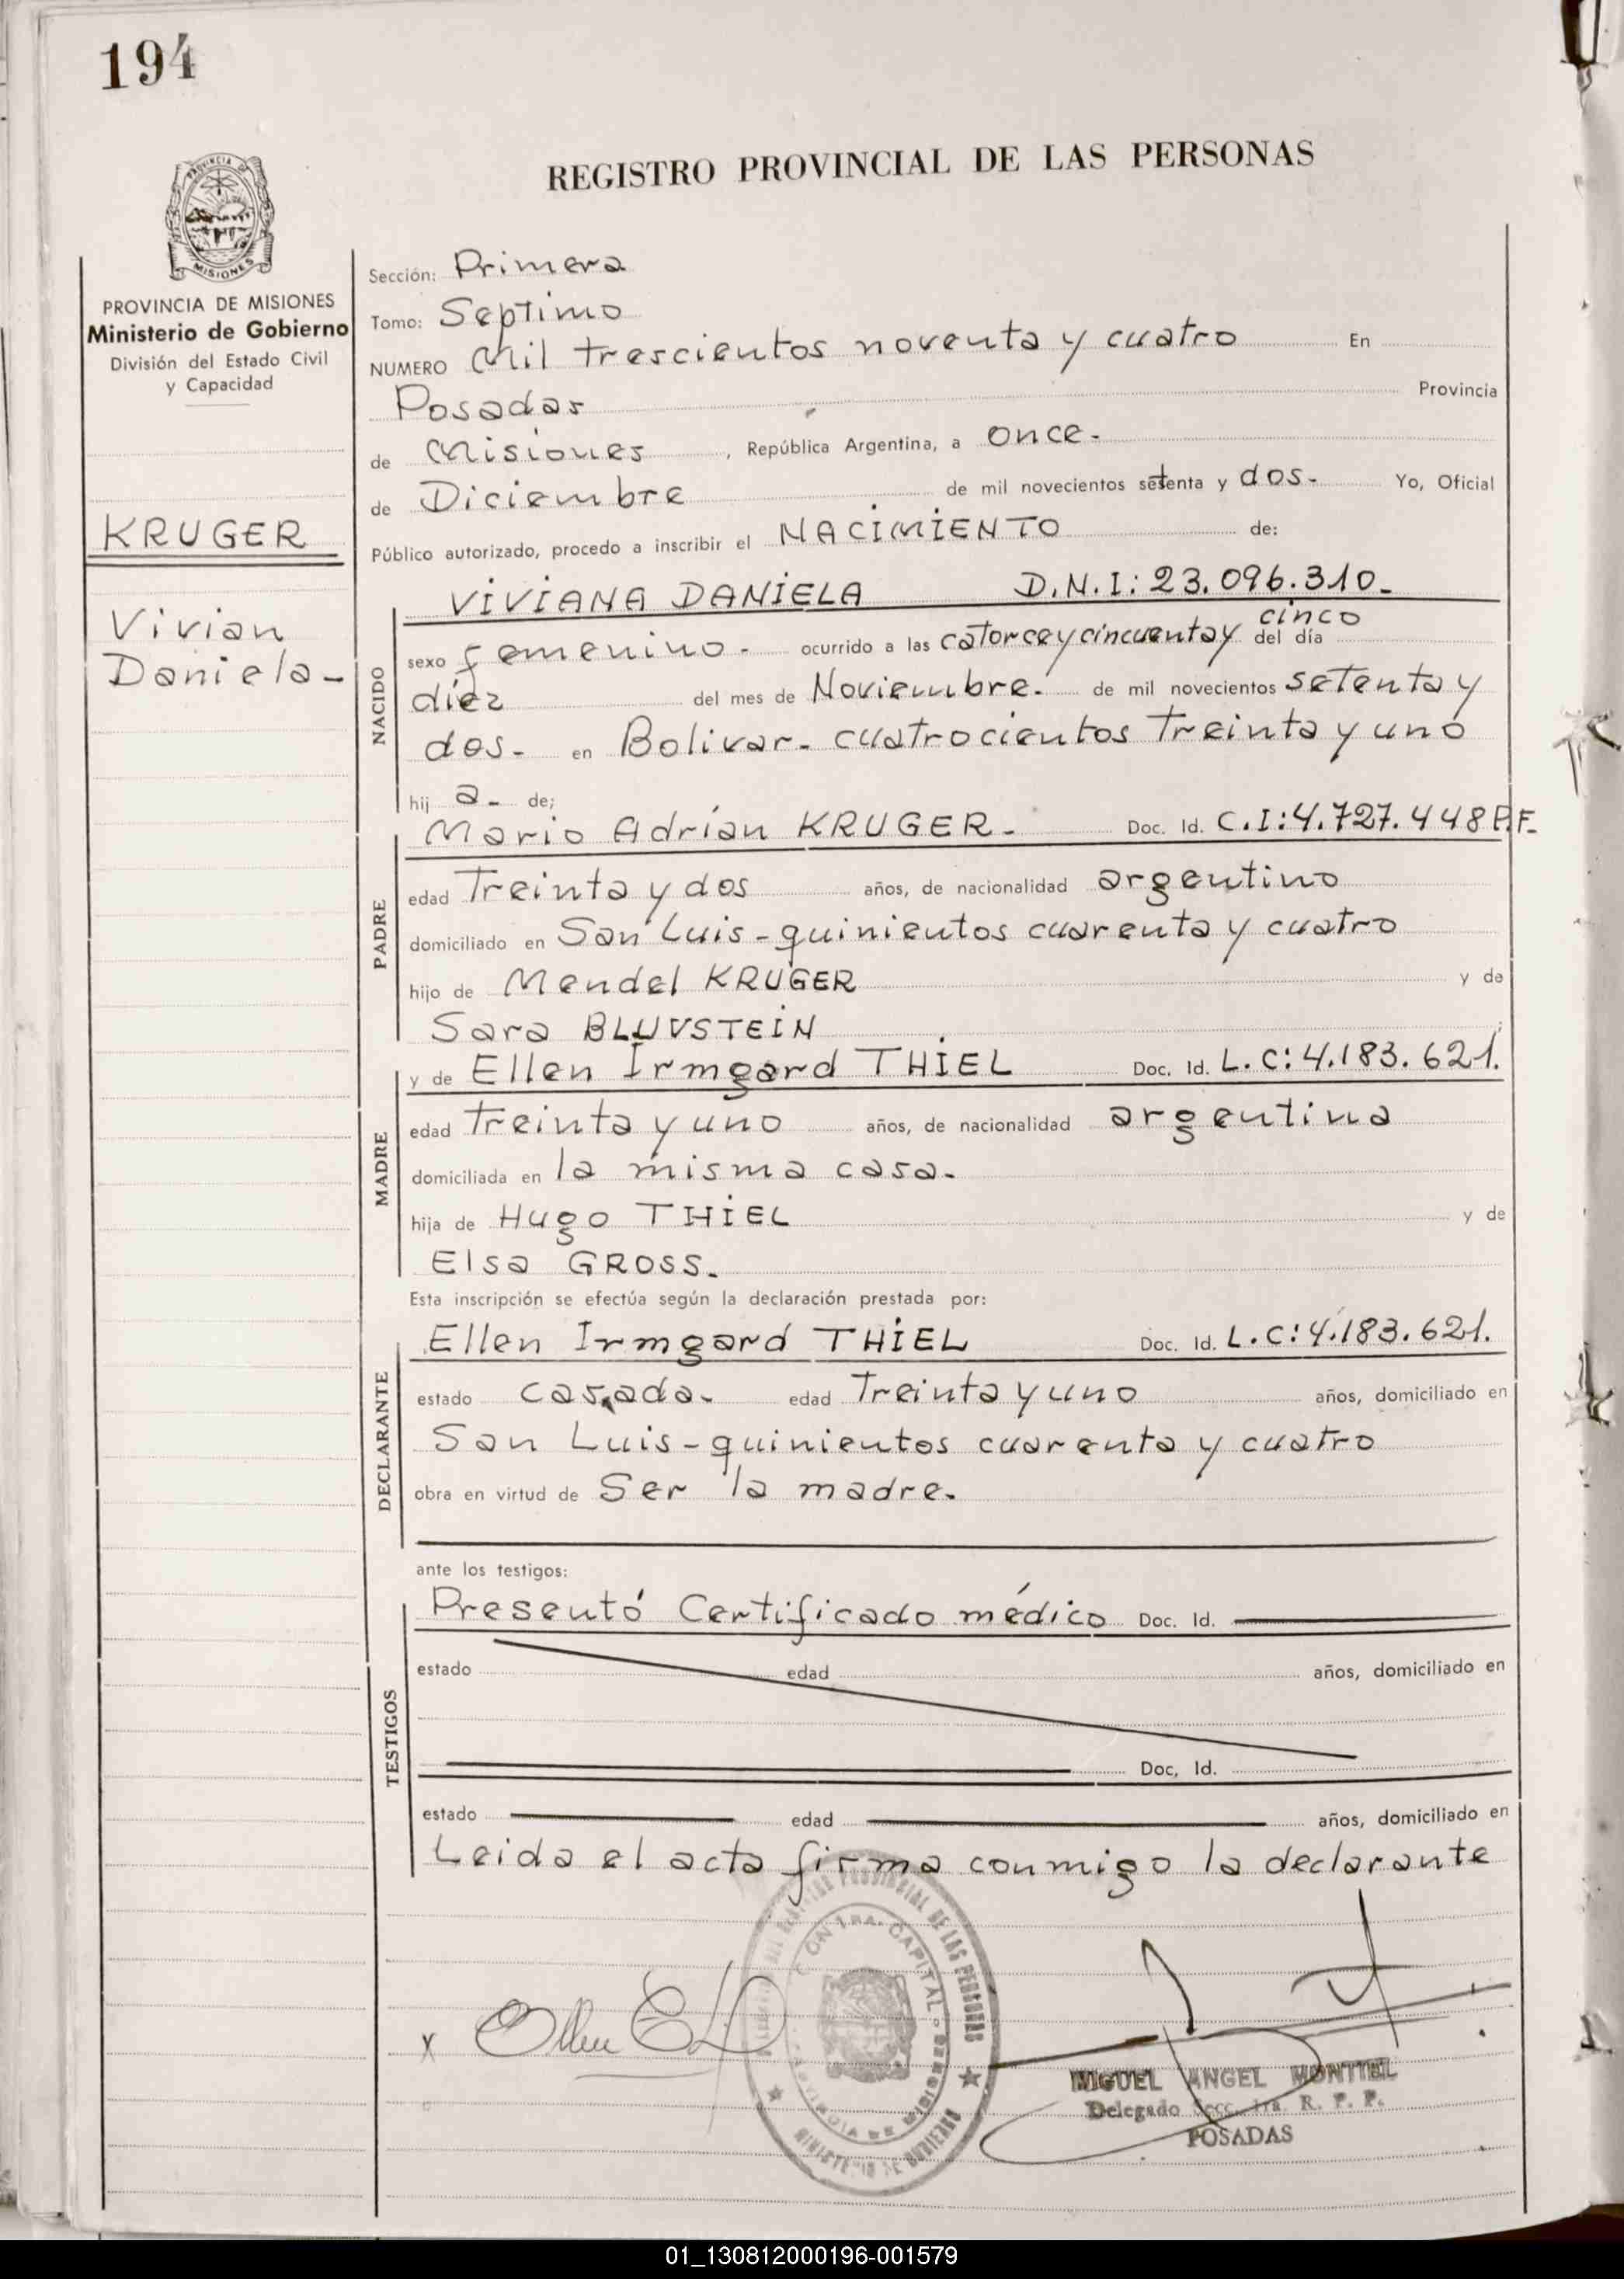 194
REGISTRO PROVINCIAL DE LAS PERSONAS
PROVINCIA DE MISIONES
Ministerio de Gobierno
División del Estado Civil
y Capacidad
KRUGER
Vivian
Daniela-
Sección: Primera
Tomo: Septimo
NUMERO Mil trescientos noventa y cuatro En
Posadas Provincia
de Misiones, República Argentina, a once.
de Diciembre de mil novecientos setenta y dos. Yo, Oficial
Público autorizado, procedo a inscribir el NACIMIENTO de:
NACIDO
VIVIANA DANIELA D.N.I: 23.096.310.
sexo femenino. ocurrido a las catorce y cincuenta y cinco del día
diez del mes de Noviembre. de mil novecientos setenta y
dos. en Bolivar. cuatrocientos treinta y uno
hij a. de;
PADRE
Mario Adrían KRUGER. Doc. Id. C.I:4.727.448 P.F.
edad Treinta y dos años, de nacionalidad argentino
domiciliado en San Luis-quinientos cuarenta y cuatro
hijo de Mendel KRUGER y de
Sara BLUVSTEIN
MADRE
y de Ellen Irmgard THIEL Doc. Id. L.C:4.183.621.
edad Treinta y uno años, de nacionalidad argentina
domiciliada en la misma casa.
hija de Hugo THIEL y de
Elsa GROSS.
Esta inscripción se efectúa según la declaración prestada por:
DECLARANTE
Ellen Irmgard THIEL Doc. Id. L.C:4.183.621.
estado casada. edad Treinta y uno años, domiciliado en
San Luis-quinientos cuarenta y cuatro
obra en virtud de Ser la madre.
ante los testigos:
TESTIGOS
Presentó Certificado médico Doc. Id.
estado edad años, domiciliado en
Doc. Id.
estado edad años, domiciliado en
Leida el acta firma conmigo la declarante
x Ellen
MIGUEL ANGEL MONTIEL
Delegado Secc. 1ra. R. P. P.
POSADAS
PROVINCIAL DE LAS PERSONAS
CAPITAL
MINISTERIO DE GOBIERNO
01_130812000196-001579